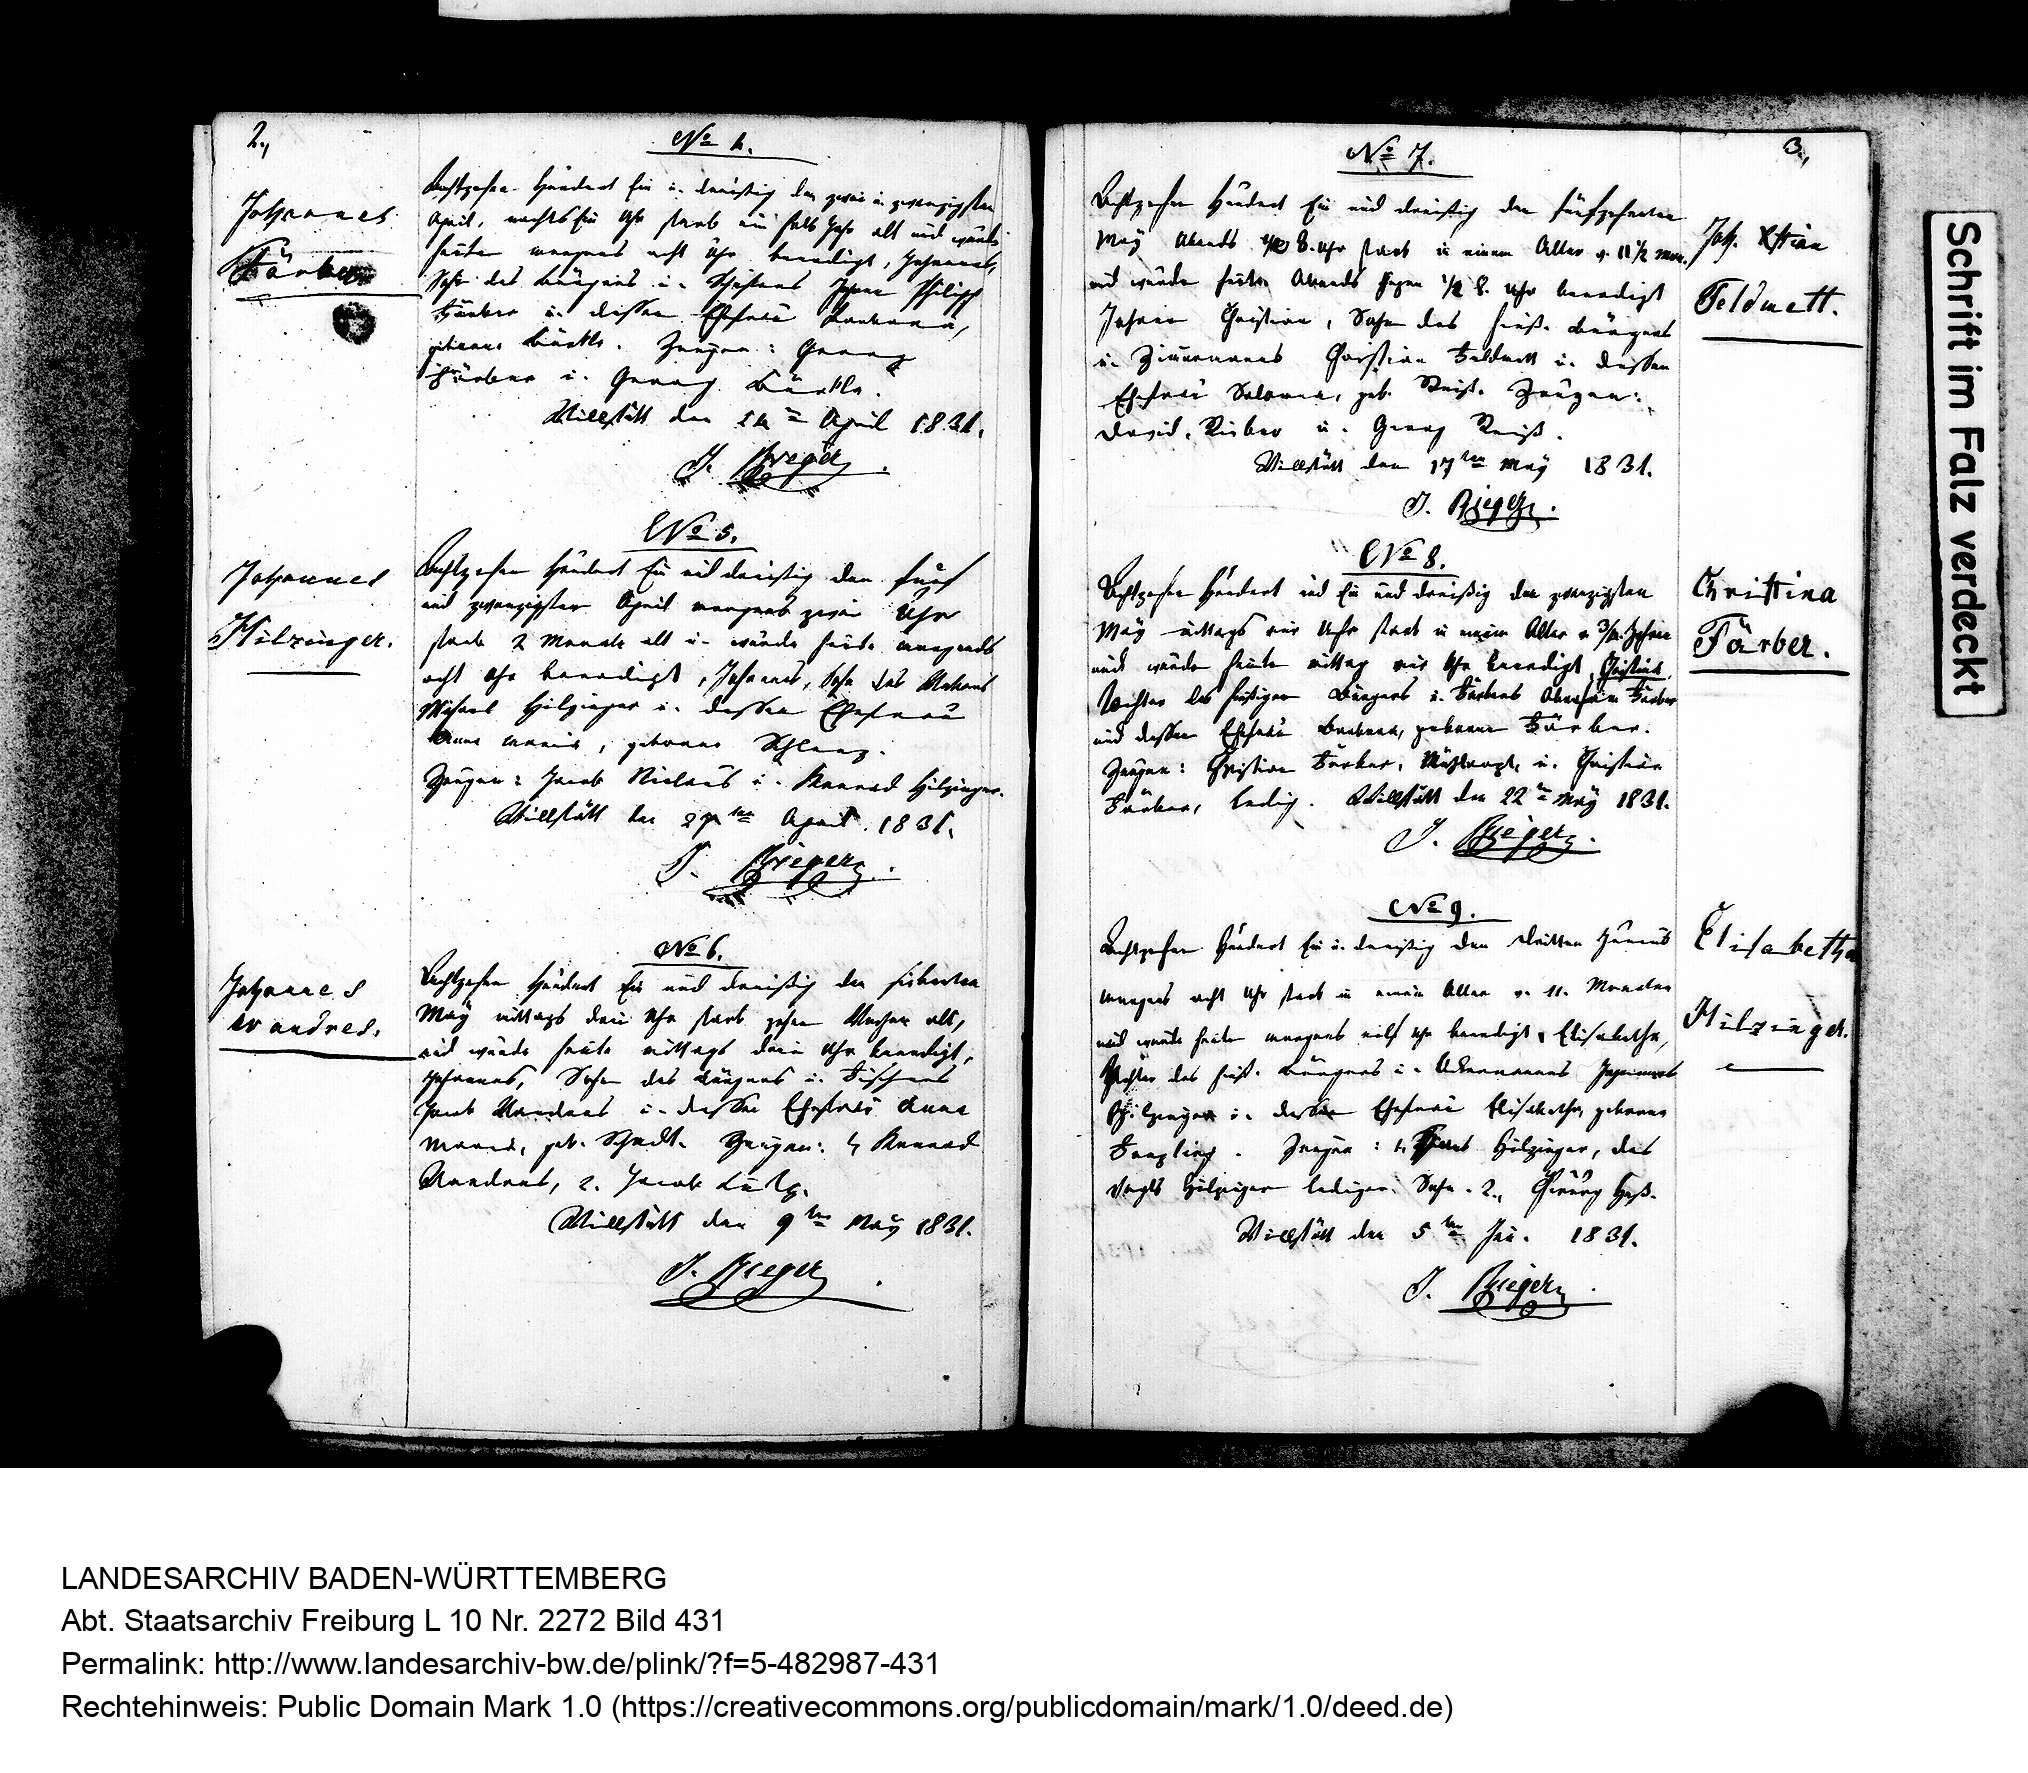 2.,
No 4.
Johannes
Färber
Achtzehn Hundert Ein u. dreißig den zwei u. zwanzigsten
April, nachts Ein Uhr starb ein halb Jahr alt und wurde
heute morgens acht Uhr beerdigt, Johannes,
Sohn des Bürgers u. Johann Philipp
Färber u. dessen Ehefrau Barbara,
geborne Bürkle. Zeugen: Georg
Färber u. Georg Bürkle.
Willstätt den 24ten April 1831.
J. Rieger
No 5.
Johannes
Hilzinger.
Achtzehn Hundert Ein und dreißig den fünf
und zwanzigsten April morgens zwei Uhr
starb 2 Monate alt u. wurde heute morgends
acht Uhr beerdigt, Johannes, Sohn des
Michael Hilzinger u. dessen Ehefrau
Anna Maria, geborne
Zeugen: Jacob Nicolaus u. Konrad Hilzinger.
Willstätt den 27ten April 1831.
J. Rieger
No 6.
Johannes
Vandres.
Achtzehn Hundert Ein und dreißig den siebenten
May mittags drei Uhr starb zehen Wochen alt,
und wurde heute mittags drei Uhr beerdigt,
Johannes, Sohn des Bürgers u. Fischers
Jacob Vandres u. dessen Ehefrau Anna
Maria, geb. Schadt. Zeugen: 1, Konrad
Vandres, 2. Jacob
Willstätt den 9ten May 1831.
J. Rieger
3.,
No 7.
Joh. Xstian
Feldmett.
Achtzehn Hundert Ein und dreißig den fünfzehnten
May Abends 1/2 8. Uhr starb in einem Alter v. 11 1/2 Mon.
und wurde heute Abends gegen 1/2 8. Uhr beerdigt
Johann Christian, Sohn des hies. Bürgers
u. Zimmermanns Christian Feldmett u. dessen
Ehefrau Salomea, geb. Reiß. Zeugen:
David u. Georg Reiß.
Willstätt den 17ten May 1831.
J. Rieger.
No 8.
Christina
Färber.
Achtzehn Hundert und Ein und dreißig den zwanzigsten
May mittags ein Uhr starb in einem Alter v. 3/4 Jahren
und wurde heute mittag ein Uhr beerdigt Christina,
Tochter des hiesigen Bürgers u. Färbers Färber
und dessen Ehefrau Barbara, geborne Färber.
Zeugen: Christian Färber, u. Christian
Färber, ledig. Willstätt den 22ten May 1831.
J. Rieger
No 9.
Elisabetha
Hilzinger.
Achtzehn Hundert Ein u. dreißig den dritten Junius
morgens acht Uhr starb in einem Alter v. 11. Monaten
und wurde heute morgens eilf Uhr beerdigt, Elisabetha,
Tochter des hies. Bürgers u. Ackermanns
Hilzinger u. dessen Ehefrau Elisabetha, geborne
Zeugen: 1. Hilzinger, des
Vogts Hilzinger lediger Sohn. 2., Georg Heß.
Willstätt den 5ten Jun. 1831.
J. Rieger
Schrift im Falz verdeckt
LANDESARCHIV BADEN-WÜRTTEMBERG
Abt. Staatsarchiv Freiburg L 10 Nr. 2272 Bild 431
Permalink: http://www.landesarchiv-bw.de/plink/?f=5-482987-431
Rechtehinweis: Public Domain Mark 1.0 (https://creativecommons.org/publicdomain/mark/1.0/deed.de)